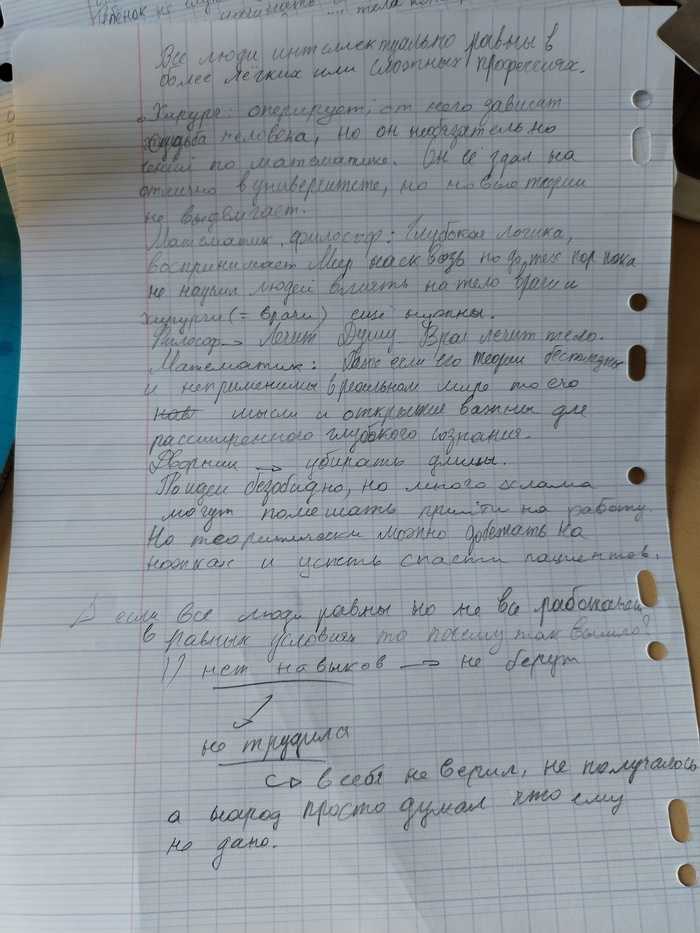 Ребёнок не
отнимать
тела
Все люди интеллектуально равны в
более легких или сложных профессиях.
Хирург: оперирует, от него зависят
судьба человека, но он необязательно
гений по математике. Он её здал на
отлично в университете, но новые теории
не выдвигает.
Математик, философ: Глубокая логика,
воспринимает Мир насквозь но до тех пор пока
не научил людей влиять на тело врачи и
хирурги (= врачи) ещё нужны.
Философ → Лечит Душу Врач лечит тело.
Математик: Даже если его теории бесполезны
и неприменимы в реальном мире то его
мысли и открытие важны для
расширенного глубокого сознания.
Дворник → убирать улицы.
По идеи безобидно, но много хлама
могут помешать прийти на работу.
Но теоритически можно добежать на
ножках и успеть спасти пациентов.
если все люди равны но не все работают
в равных условиях то почему так вышло?
1) нет навыков → не берут
не трудился
в себя не верил, не получалось
а народ просто думал что ему
не дано.